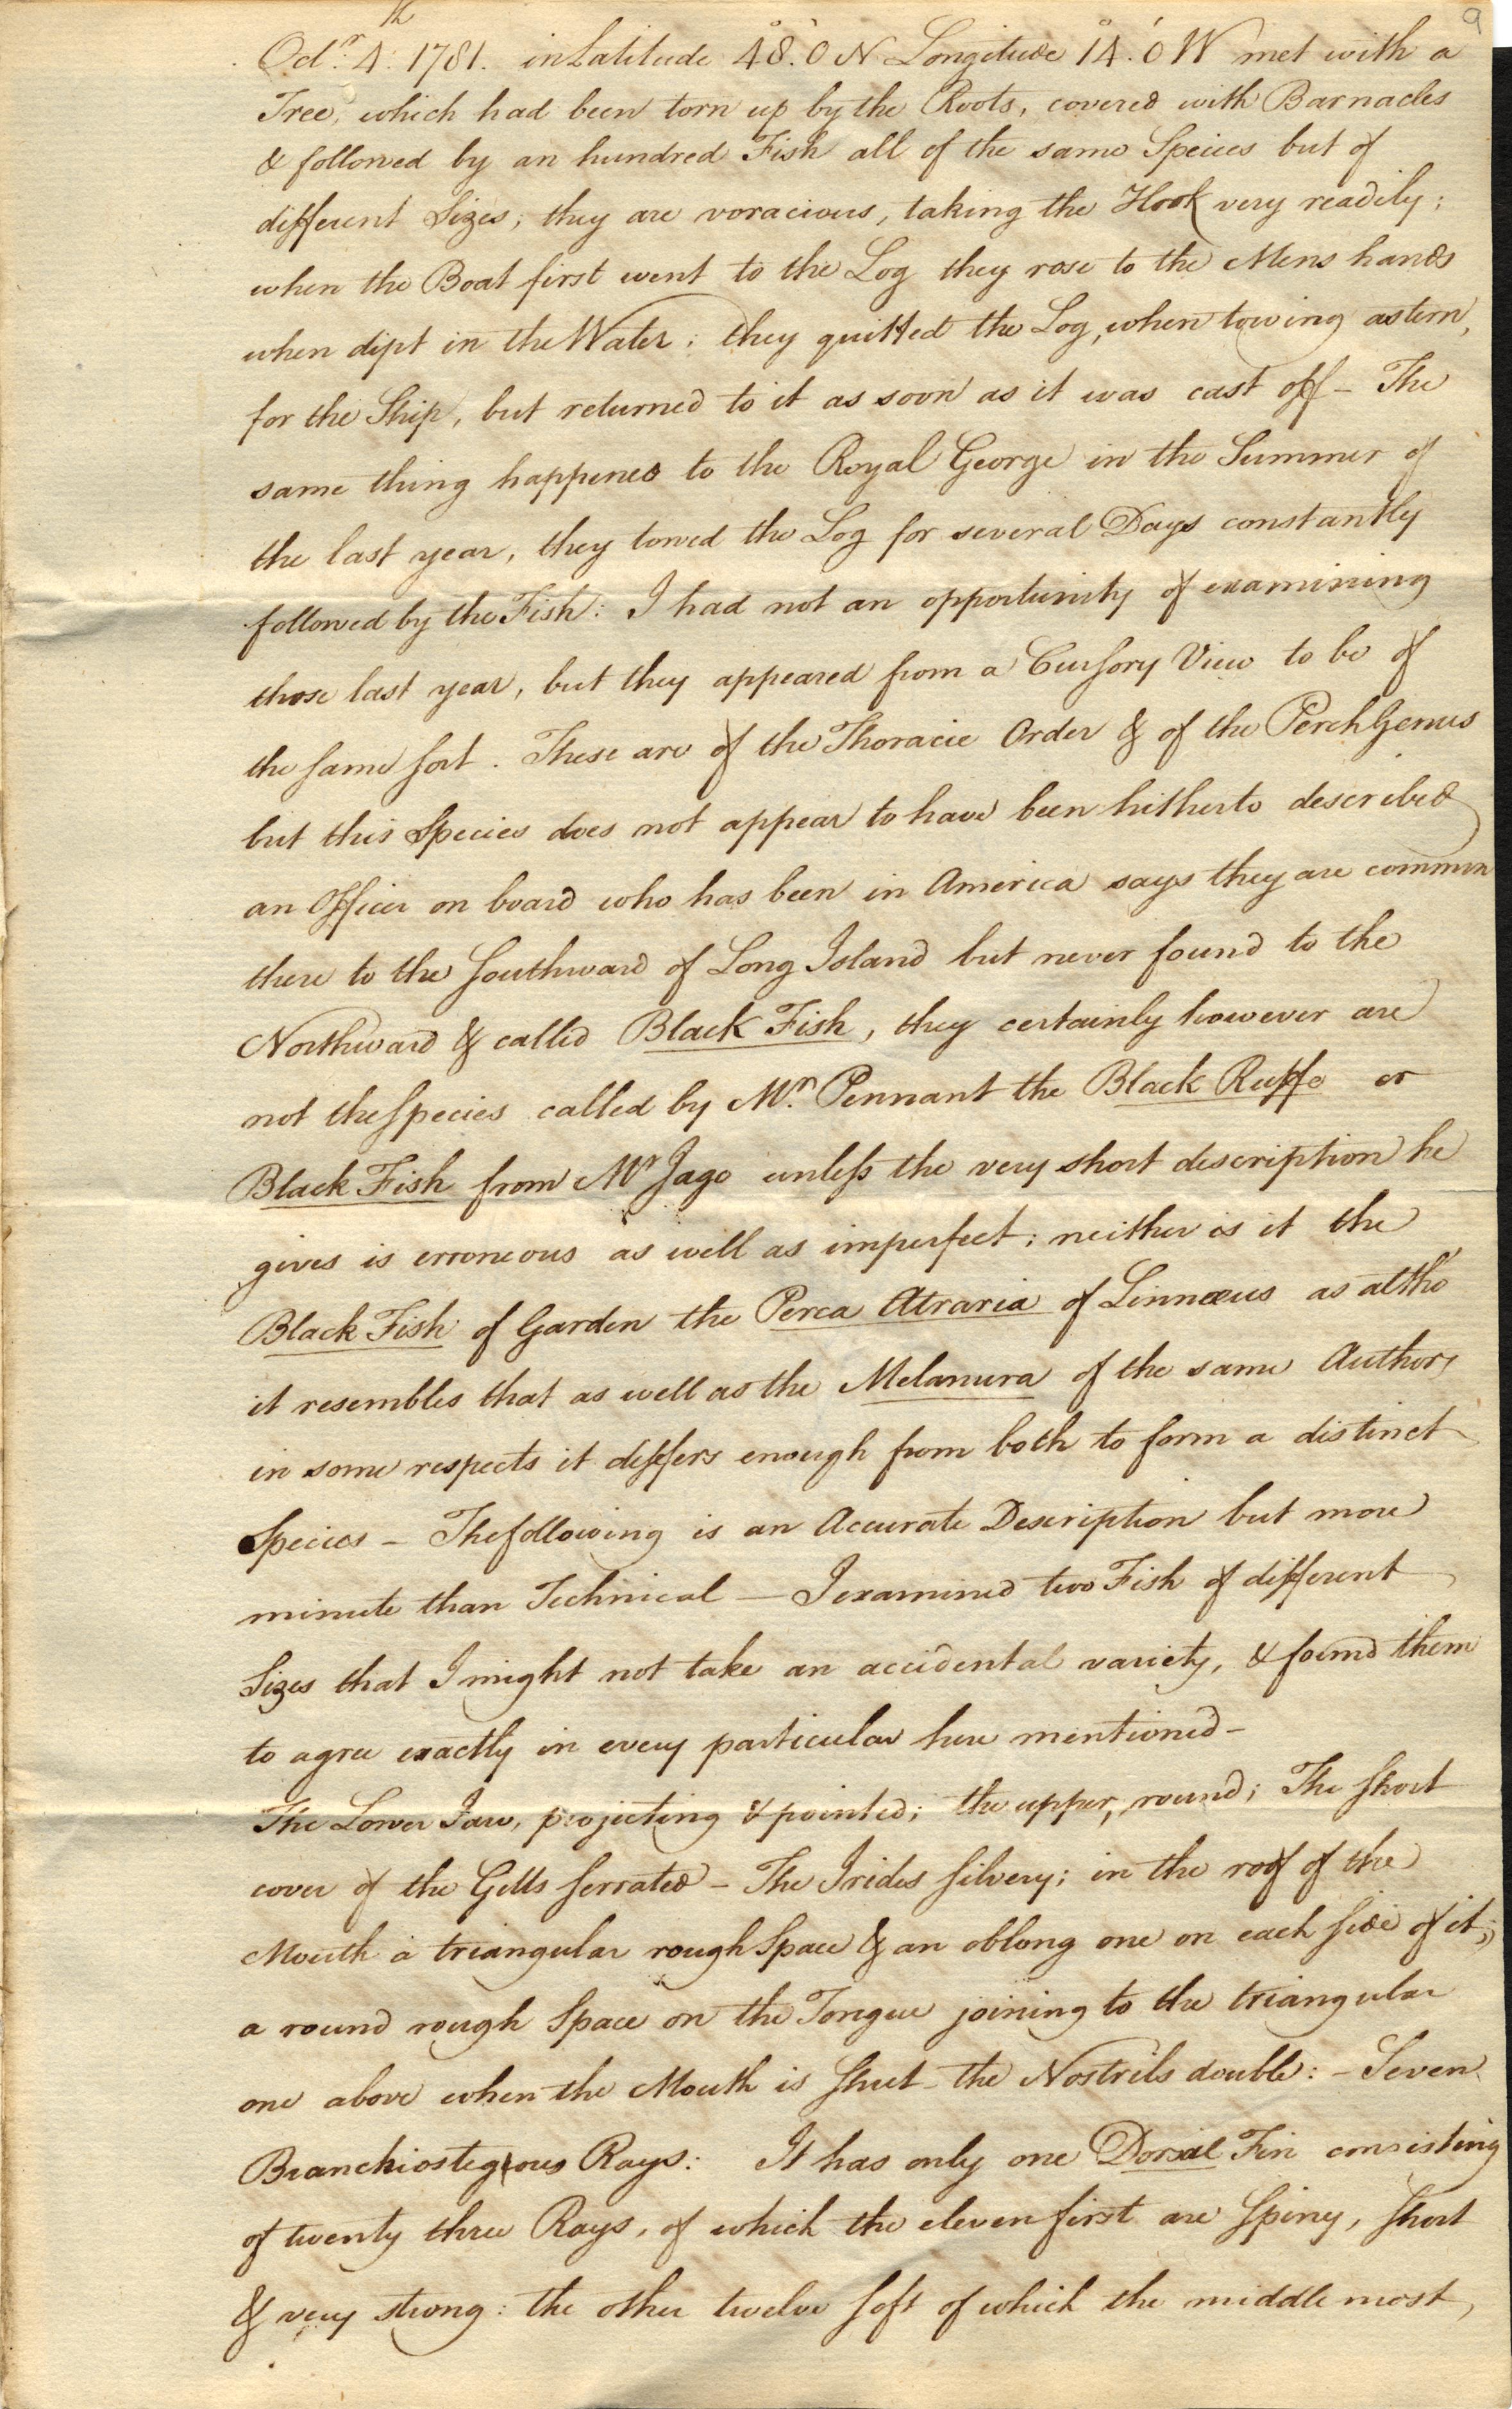 9
Octr. 4th. 1781. in Latitude 48°.0' N Longitude 14°.0' W met with a
Tree, which had been torn up by the Roots, covered with Barnacles
& followed by an hundred Fish all of the same Speices but of
different Sizes; they are voracious, taking the Hook very readily;
when the Boat first went to the Log they rose to the Mens hands
when dipt in the Water; they quitted the Log, when towing astern,
for the Ship, but returned to it as soon as it was cast off – The
same thing happened to the Royal George in the Summer of
the last year, they towed the Log for several Days constantly
followed by the Fish: I had not an opportunity of examining
those last year, but they appeared from a Cursory View to be of
the same sort. These are of the Thoracic Order & of the Perch Genus
but this Species does not appear to have been hitherto described
an Officer on board who has been in America says they are common
there to the Southward of Long Island but never found to the
Northward & called Black Fish, they certainly however are
not the Species called by Mr. Pennant the Black Ruffe or
Black Fish from Mr Jago unless the very short description he
gives is erroneous as well as imperfect; neither is it the
Black Fish of Garden the Perca Atraria of Linnæus as altho'
it resembles that as well as the Melanura of the same Authors
in some respects it differs enough from both to form a distinct
Species – The following is an Accurate Description but more
minute than Technical — I examined two Fish of different
Sizes that I might not take an accidental variety, & found them
to agree exactly in every particular here mentioned –
The Lower Jaw, projecting & pointed; the upper, round; The short
cover of the Gills serrated – The Irides silvery; in the roof of the
Mouth a triangular rough Space & an oblong one on each side of it;
a round rough Space on the Tongue joining to the triangular
one above when the Mouth is shut – the Nostrils double: – Seven
Branchiostegous Rays: It has only one Dorsal Fin consisting
of twenty three Rays, of which the eleven first are Spiny, short
& very strong: the other twelve soft of which the middlemost,